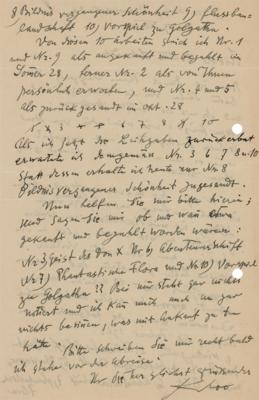 8 Bildnis vergangener Schönheit 9) Flussben-
landschaft 10) Vorspiel zu Golgatha.
Von diesen 10 Arbeiten strich ich Nr. 1
und Nr. 9 als angekauft und bezahlt im
Sommer 28, ferner Nr. 2 als von Ihnen
persönlich erworben, und Nr. 4 und 5
als zurückgesandt im Okt. 28
Als ich jetzt die Leihgaben zurückerbat
erwartete ich demgemäss Nr. 3 6 7 8 u 10
Statt dessen erhalte ich heute nur Nr. 8
Bildnis vergangener Schönheit zugesandt.
Nun helfen Sie mir bitte hierin;
und sagen Sie mir ob mir was etwa
gekauft und bezahlt worden wären:
Nr 3) Geist des Don X Nr 6) Abenteurerschiff
Nr 7) Phantastische Flora und Nr 10) Vorspiel
zu Golgatha?? Bei mir steht gar nichts
notiert und ich kann mich auch an gar
nichts besinnen, was mit Ankauf zu tun
hätte. Bitte schreiben Sie mir recht bald
ich stehe vor der Abreise.
Ihr Sie herzlichst grüssender